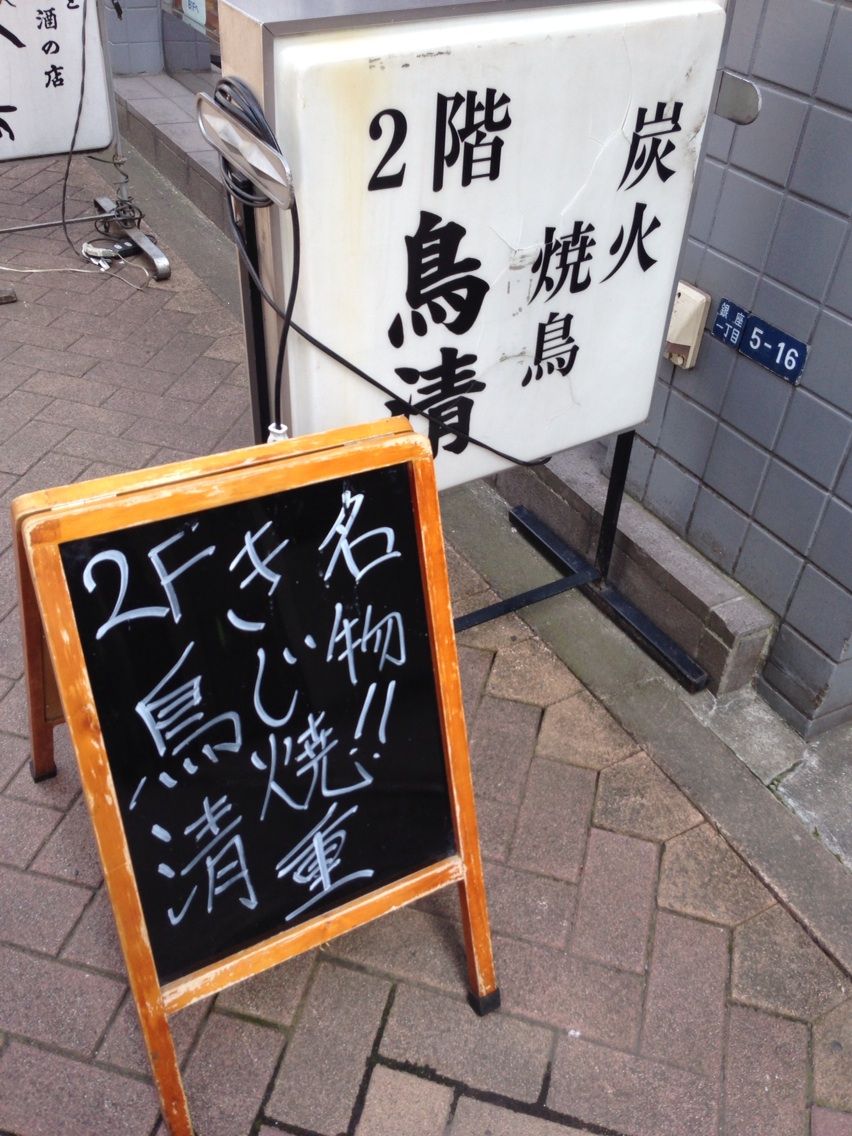 酒の店
炭火
焼鳥
2階 鳥清
銀座
一丁目
5-16
名物!!
きじ焼重
2F 鳥清